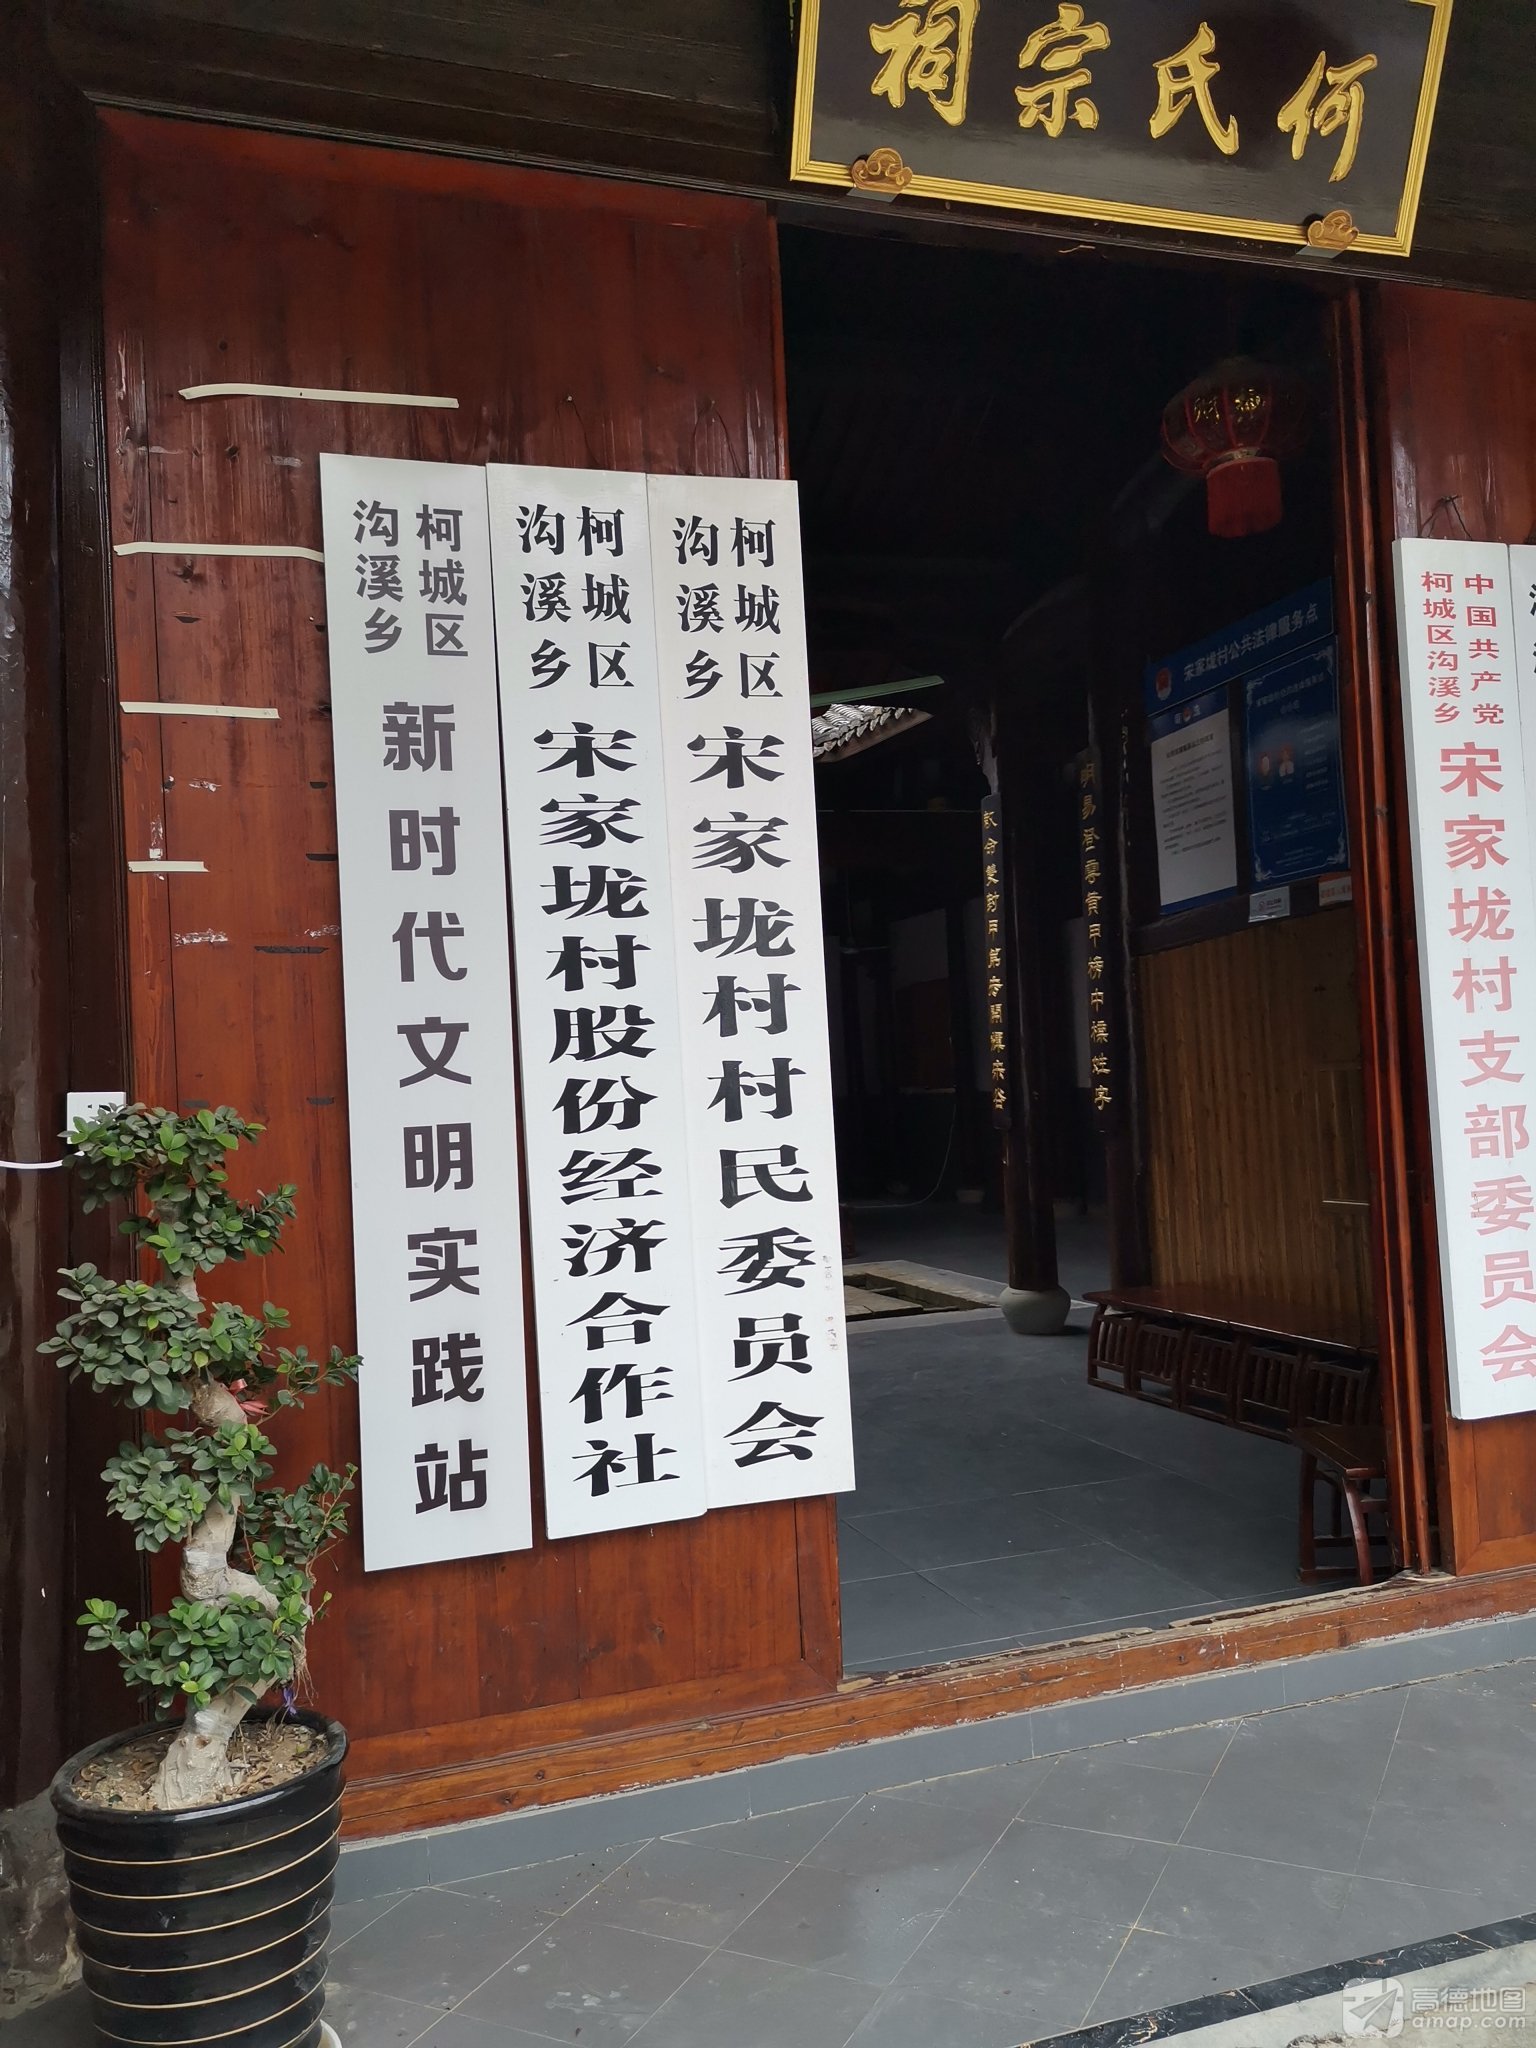 何氏宗祠
柯城区
沟溪乡
新时代文明实践站
柯城区
沟溪乡
宋家垅村股份经济合作社
柯城区
沟溪乡
宋家垅村村民委员会
宋家垅村公共法律服务点
中国共产党
柯城区沟溪乡
宋家垅村支部委员会
高德地图
amap.com